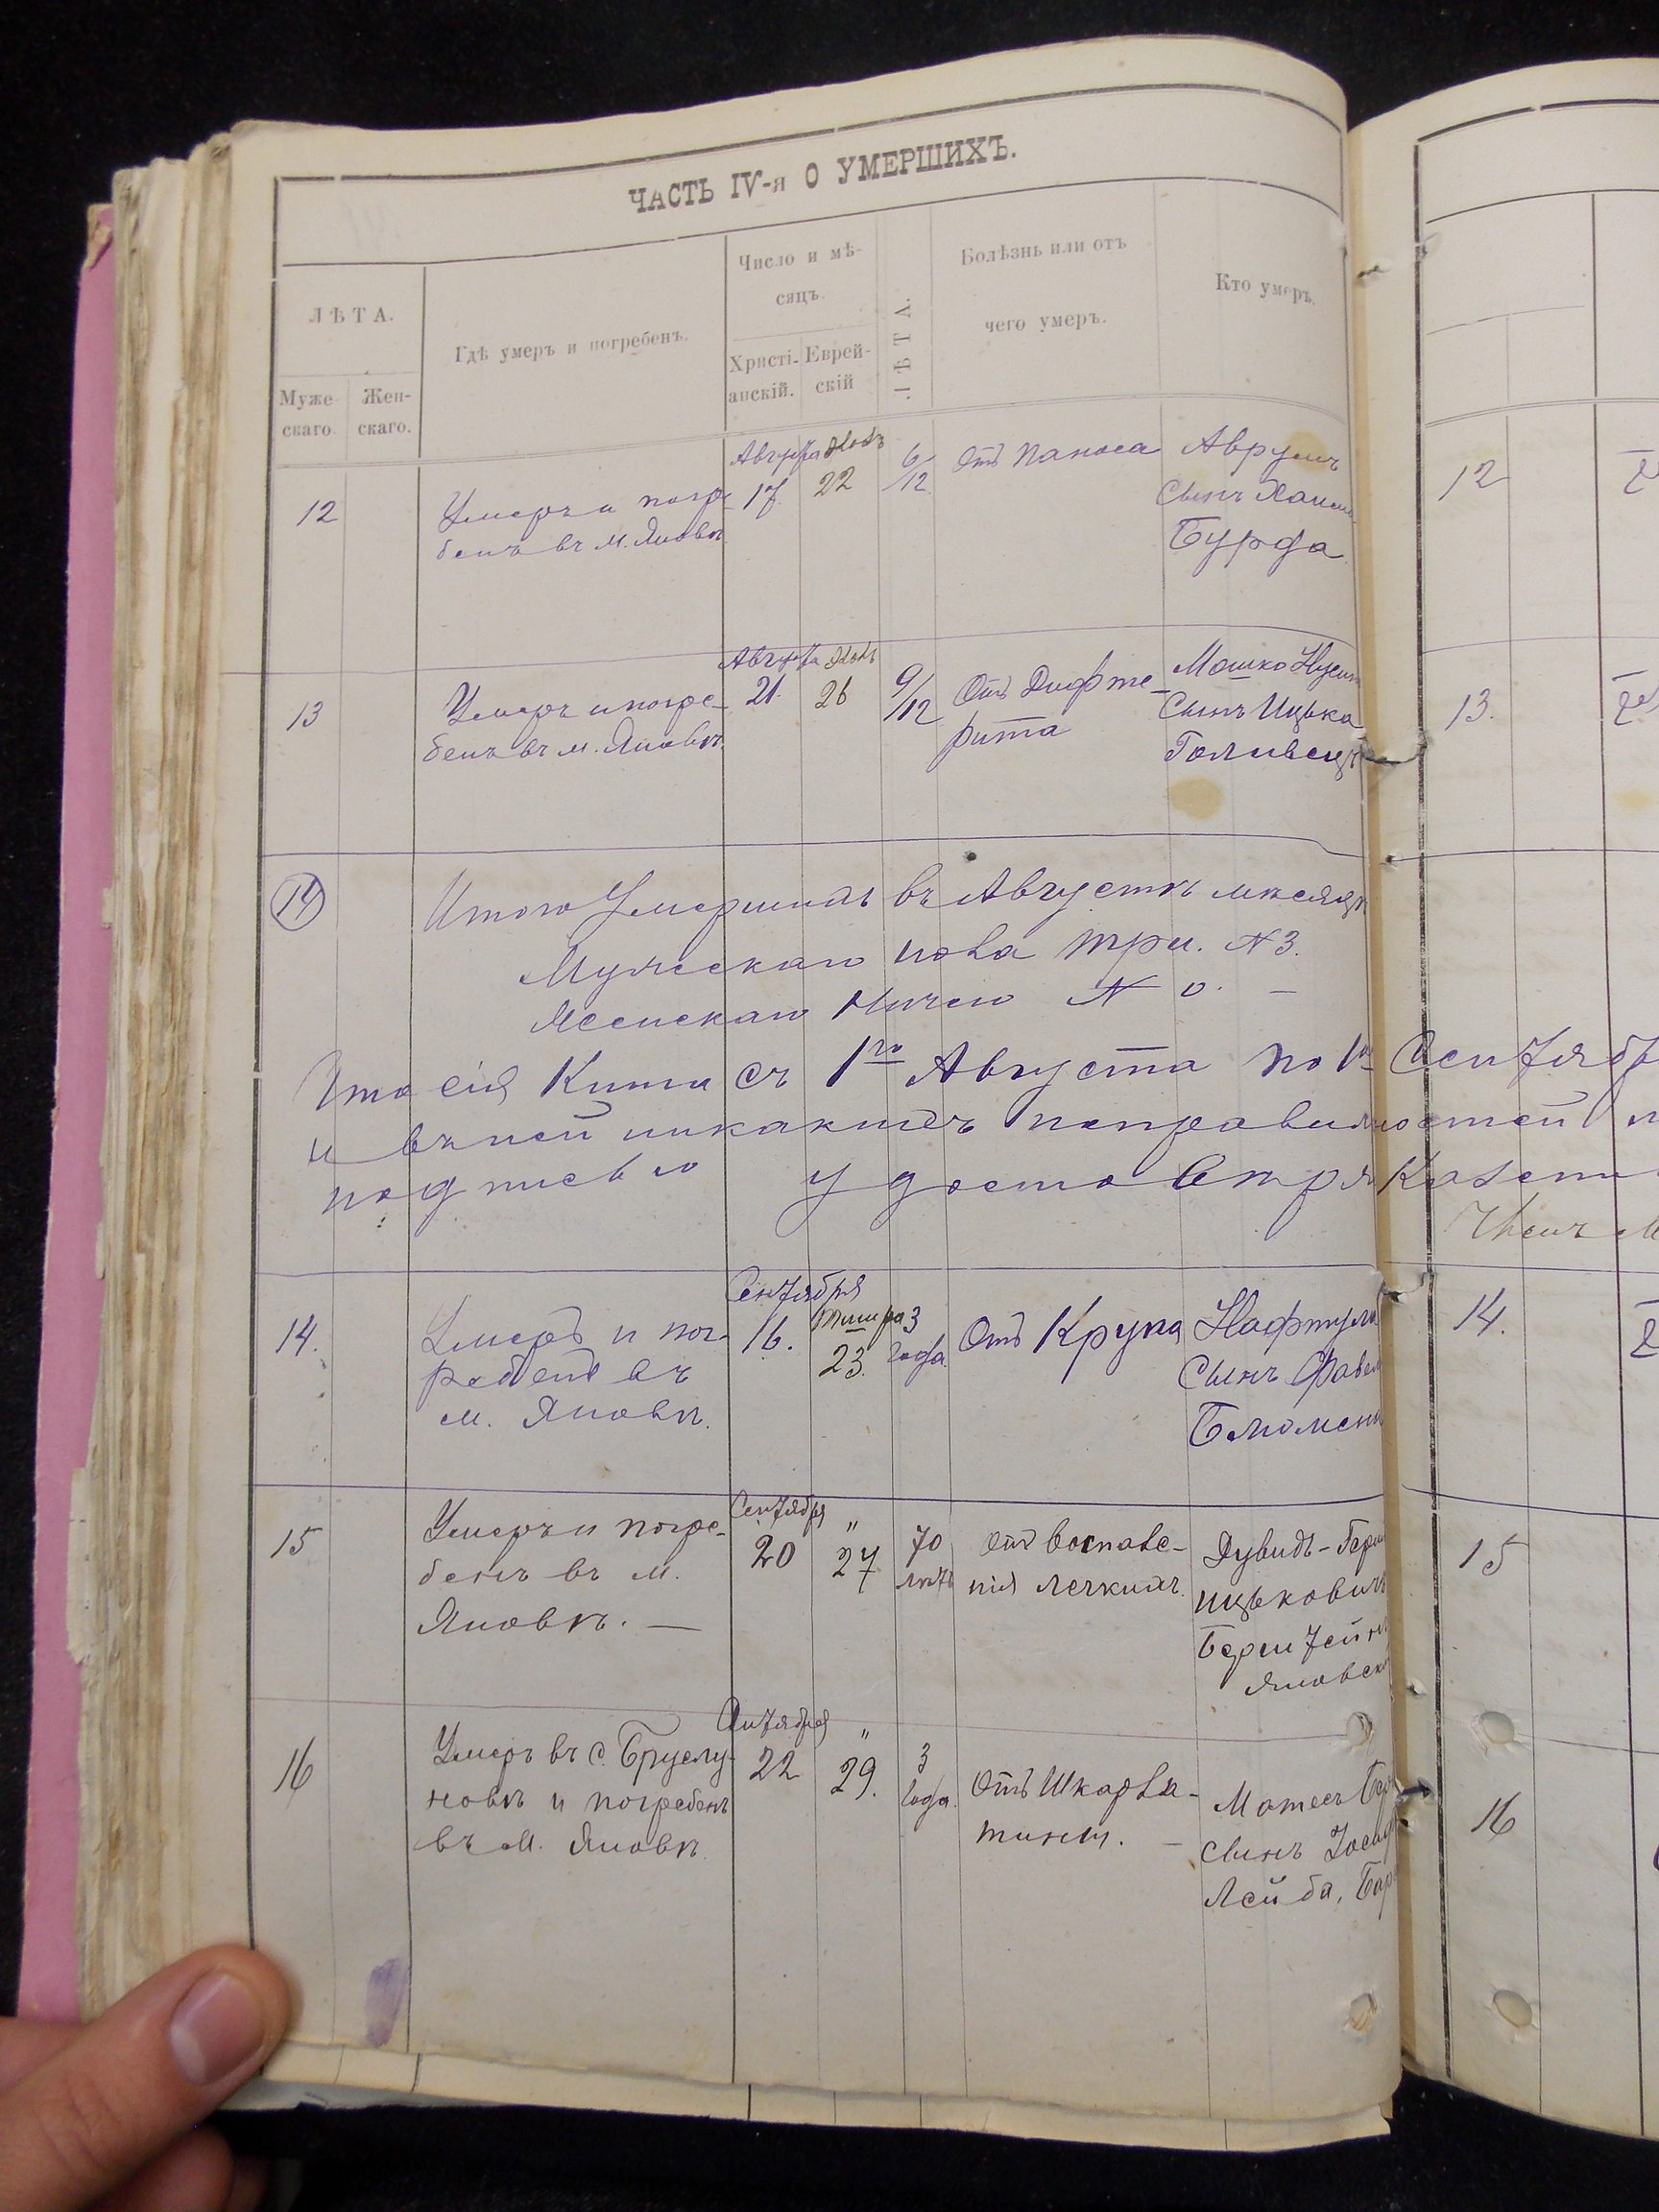 ЧАСТЬ IV-я О УМЕРШИХЪ.
ЛѢТА.
Мужескаго
Женскаго.
Гдѣ умеръ и погребенъ.
Число и мѣсяцъ.
Христіанскій.
Еврейскій
ЛѢТА.
Болѣзнь или отъ чего умеръ.
Кто умеръ.
12
Умеръ и погре-
бенъ въ м. Яновѣ
Августа
17
22
6/12
Отъ Паноса
Аврумъ
Сынъ
Бурда
12
13
Умеръ и погре-
бенъ въ м. Яновѣ
Августа
21
26
9/12
Отъ Дифте-
рита
Мошко
Сынъ Ицька
13.
14
Итого Умершихъ въ Августѣ мѣсяцѣ
Мужескаго пола три. N 3.
Женскаго Ничего N 0. —
Что сія Книга съ 1го Августа по 1е Сентября
и въ ней никакихъ неправильностей
подписью удостовѣря
14.
Умеръ и пог-
ребенъ въ
м. Яновѣ.
Сентября
16.
Тишра
23.
3
года
Отъ Крупа
Нафтула
Сынъ
14.
15
Умеръ и погре-
бенъ въ м.
Яновѣ. —
Сентября
20
"
27
70
лѣтъ
Отъ воспале-
нія легкихъ.
Дувидъ-
Ицьковичъ
15
16
Умеръ въ с. Бруслу-
новѣ и погребенъ
въ м. Яновѣ
Сентября
22
"
29.
3
года.
Отъ Шкарла-
тины. —
Сынъ
Лейба,
16